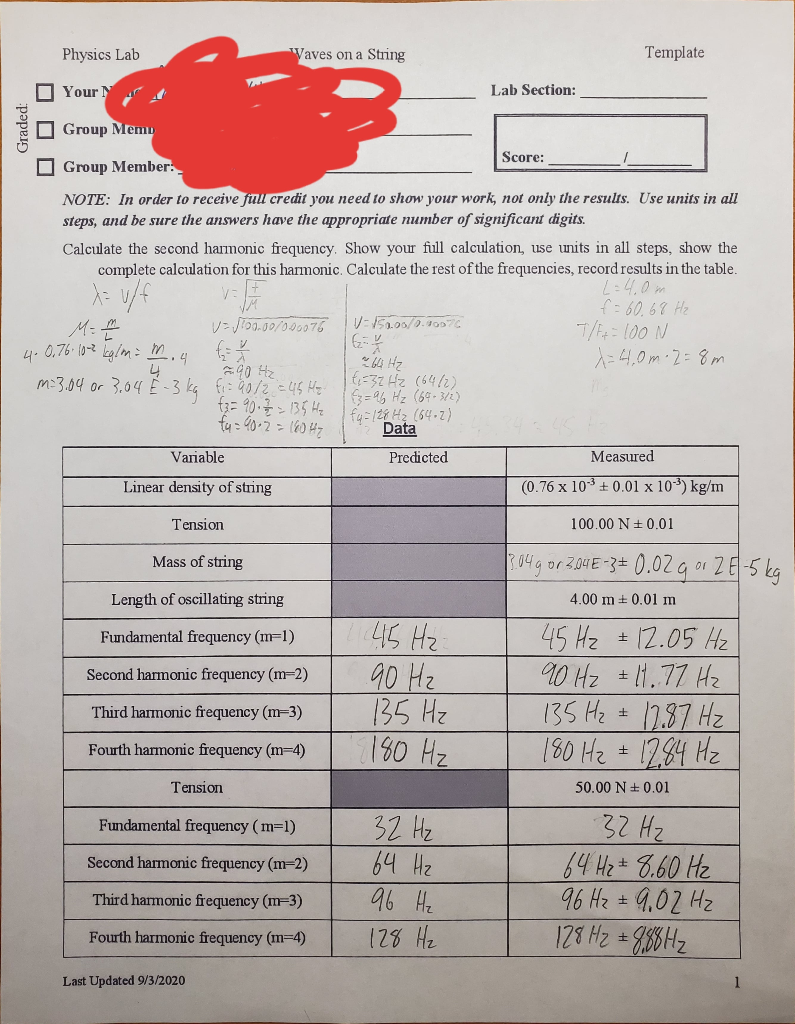 Physics Lab Waves on a String Template
Graded:
Your
Lab Section:
Group Memb
Group Member:
Score: /
NOTE: In order to receive full credit you need to show your work, not only the results. Use units in all
steps, and be sure the answers have the appropriate number of significant digits.
Calculate the second harmonic frequency. Show your full calculation, use units in all steps, show the
complete calculation for this harmonic. Calculate the rest of the frequencies, record results in the table.
λ= v/f
M= m/L
4· 0.76·10-2 kg/m = m/4 · 4
m=3.04 or 3.04 E-3 kg
V=√T/M
V=√100.00/0.00076
f2= V/λ
≈90 Hz
f1= 90/2 = 45 Hz
f3= 90·3/2 = 135 Hz
f4= 90·2 = 180 Hz
V=√50.00/0.00076
f2= V/λ
≈64 Hz
f1=32 Hz (64/2)
f3=96 Hz (64·3/2)
f4=128 Hz (64·2)
L=4.0m
f=60.68 Hz
T/Ft=100 N
λ=4.0m·2=8m
Data
Variable Predicted Measured
Linear density of string (0.76 x 10-3 ± 0.01 x 10-3) kg/m
Tension 100.00 N ± 0.01
Mass of string 3.04g or 3.04E-3± 0.02 g or 2E-5 kg
Length of oscillating string 4.00 m ± 0.01 m
Fundamental frequency (m=1) 45 Hz 45 Hz ± 12.05 Hz
Second harmonic frequency (m=2) 90 Hz 90 Hz ± 11.77 Hz
Third harmonic frequency (m=3) 135 Hz 135 Hz ± 12.87 Hz
Fourth harmonic frequency (m=4) 180 Hz 180 Hz ± 12.84 Hz
Tension 50.00 N ± 0.01
Fundamental frequency ( m=1) 32 Hz 32 Hz
Second harmonic frequency (m=2) 64 Hz 64 Hz ± 8.60 Hz
Third harmonic frequency (m=3) 96 Hz 96 Hz ± 9.02 Hz
Fourth harmonic frequency (m=4) 128 Hz 128 Hz ± 9.88 Hz
Last Updated 9/3/2020 1